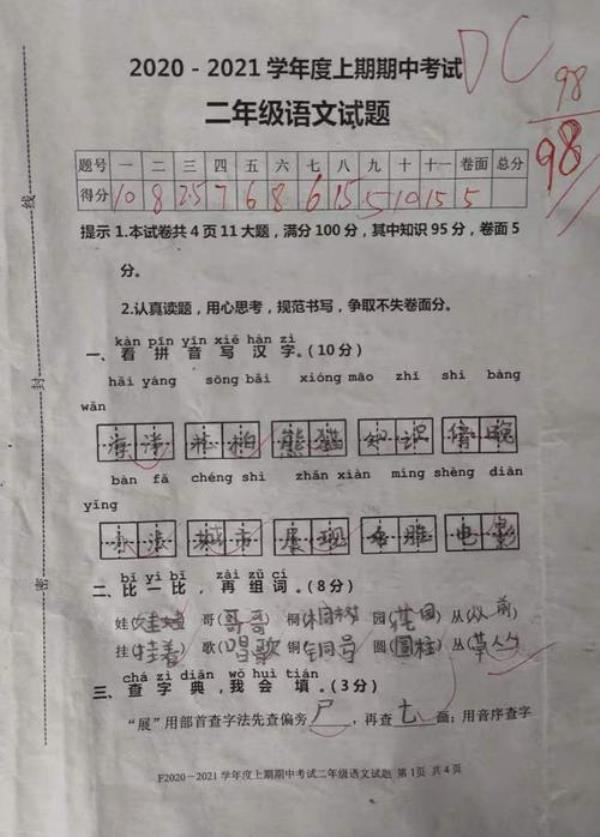 2020－2021学年度上期期中考试
DC
二年级语文试题
98
98
题号 一 二 三 四 五 六 七 八 九 十 十一 卷面 总分
得分 10 8 2.5 7 6 8 6 15 5 10 15 5
提示 1.本试卷共4页11大题，满分100分，其中知识95分，卷面5
分。
2.认真读题，用心思考，规范书写，争取不失卷面分。
kàn pīn yīn xiě hàn zì
一、看拼音写汉字。(10分)
hǎi yáng sōng bǎi xióng māo zhī shi bàng
wǎn
海洋 松柏 熊猫 知识 傍晚
bàn fǎ chéng shì zhǎn xiàn míng shèng diàn
yǐng
办法 城市 展现 名胜 电影
bǐ yi bǐ zài zǔ cí
二、比一比，再组词。(8分)
娃(娃娃) 哥(哥哥) 桐(桐树) 园(花园) 从(从前)
挂(挂着) 歌(唱歌) 铜(铜号) 圆(圆柱) 丛(草丛)
chá zì diǎn wǒ huì tián
三、查字典，我会填。(3分)
“展”用部首查字法先查偏旁 尸 ，再查 七 画；用音序查字
F2020－2021学年度上期期中考试二年级语文试题 第1页 共4页
线
封
密